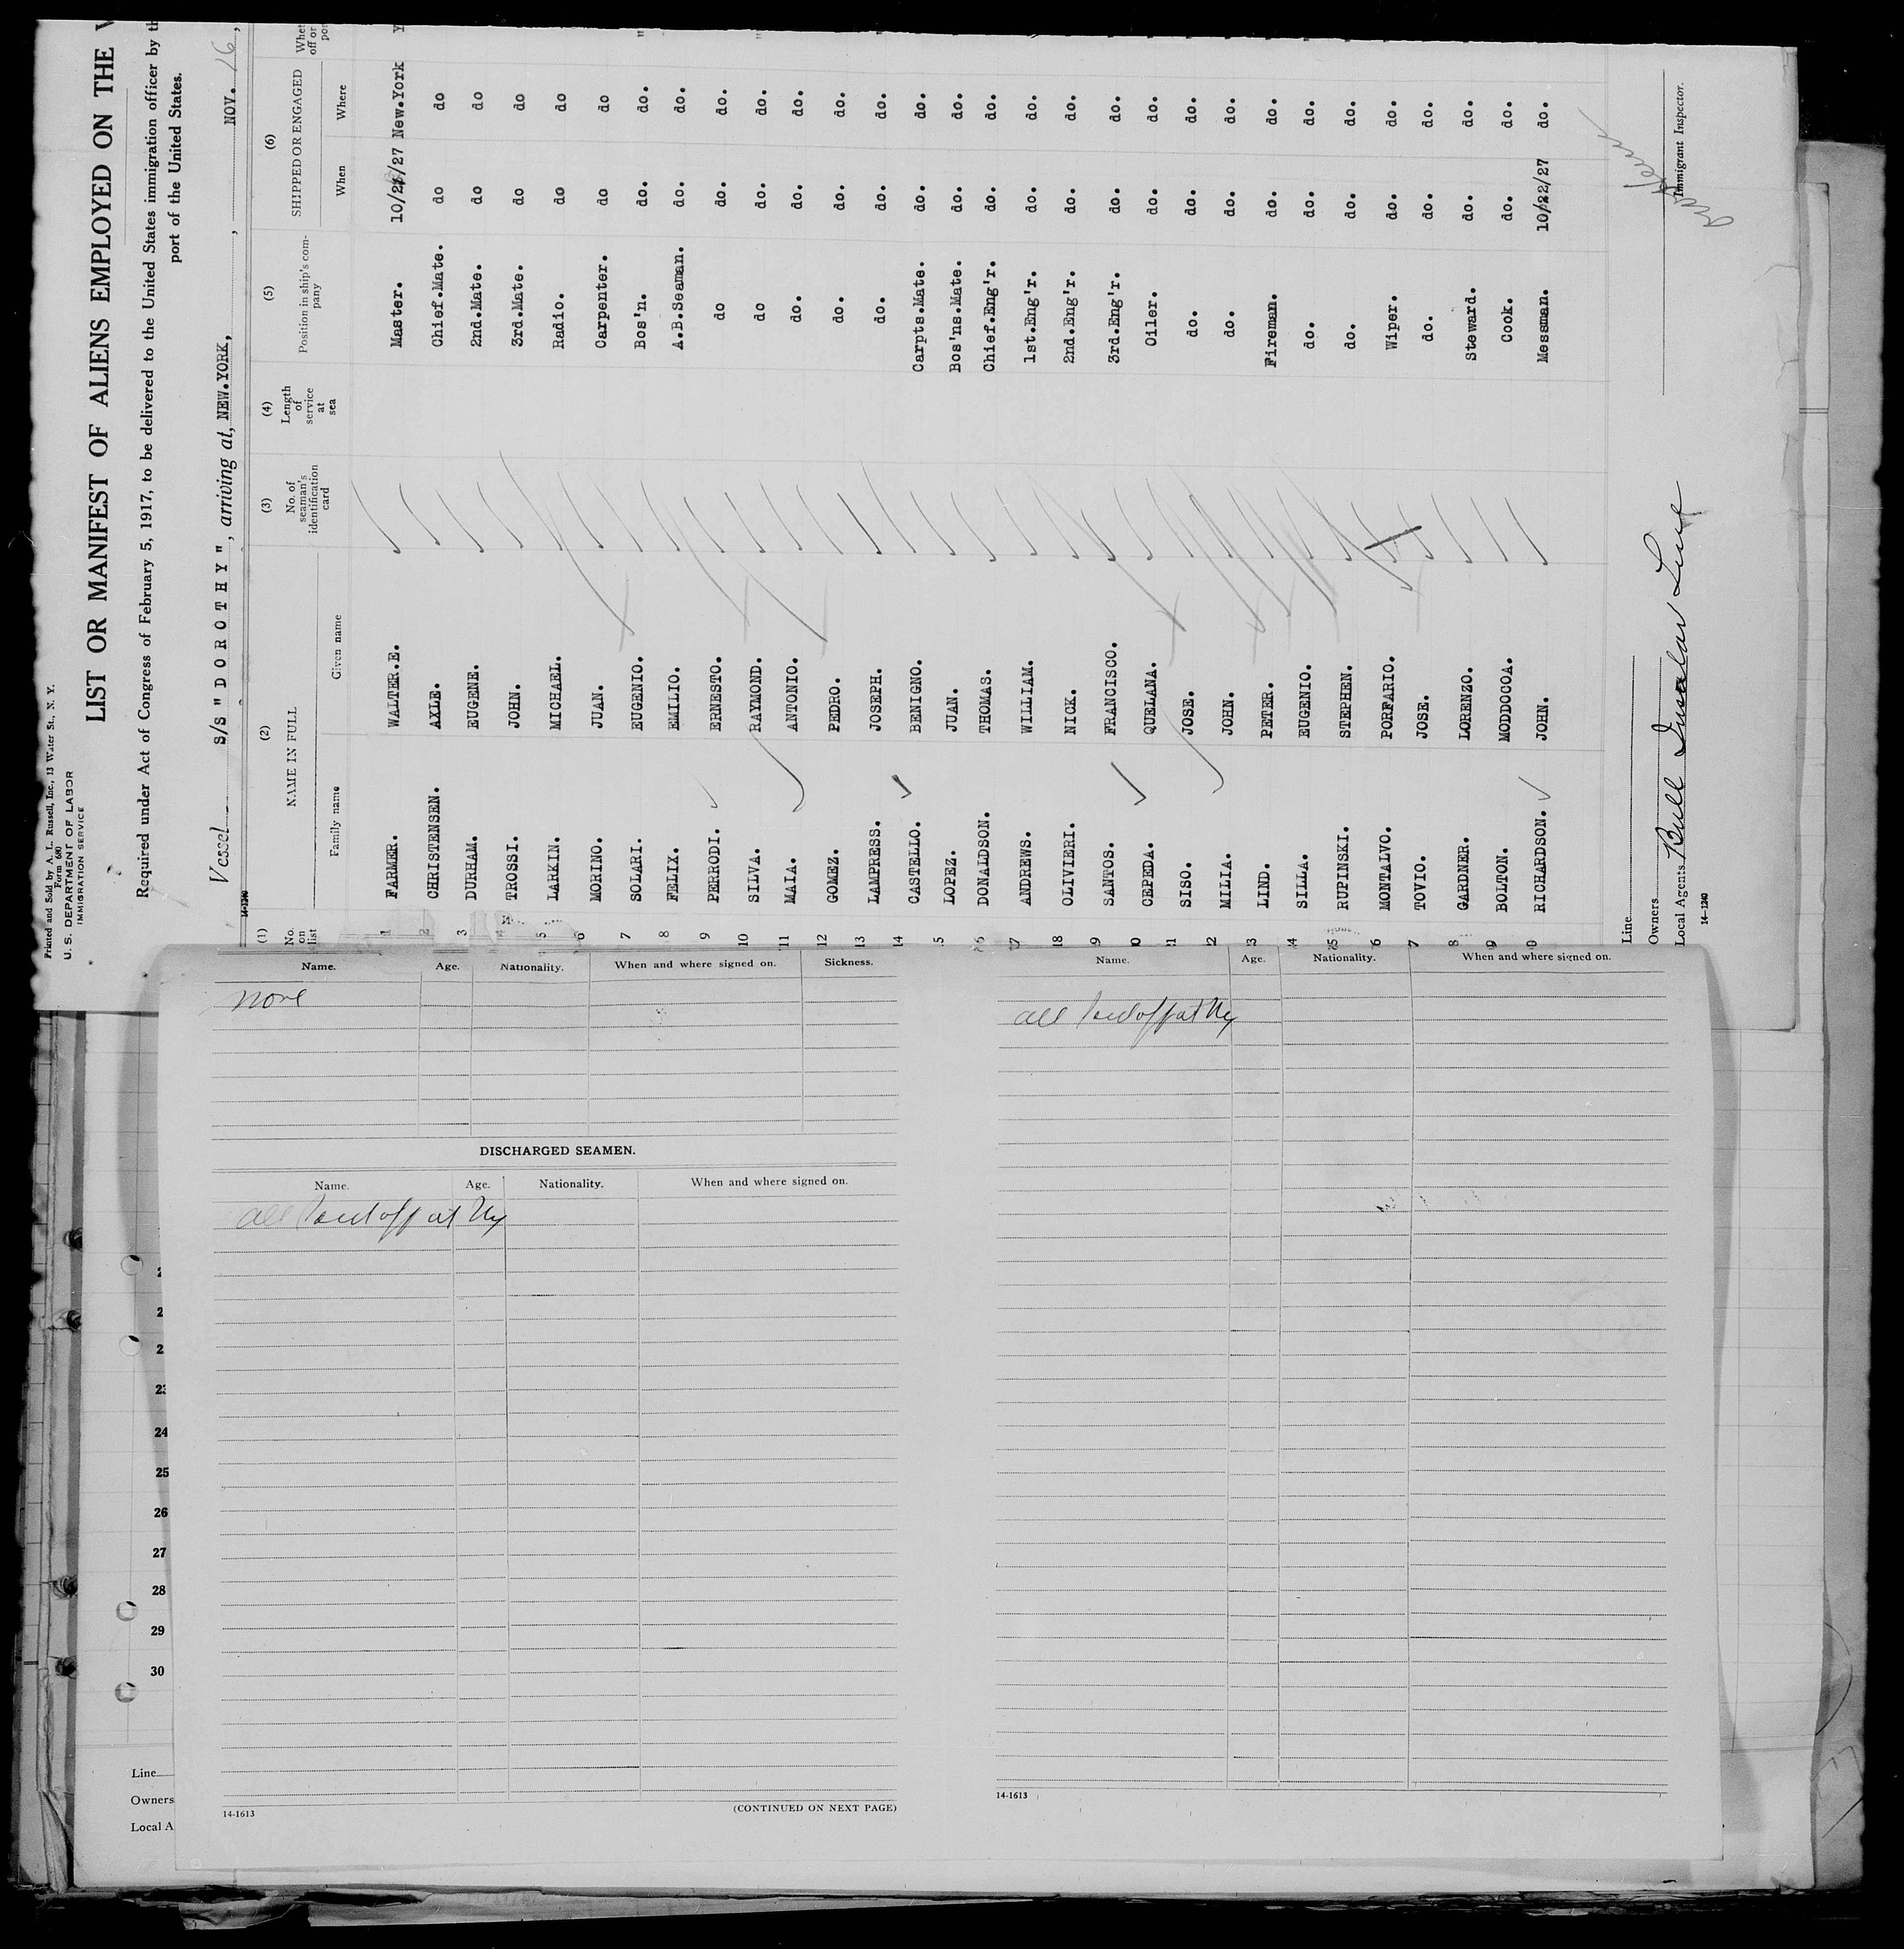 Printed and Sold by A. L. Russell, Inc., 13 Water St., N. Y.
Form 680
U. S. DEPARTMENT OF LABOR
IMMIGRATION SERVICE
LIST OR MANIFEST OF ALIENS EMPLOYED ON THE
Required under Act of Congress of February 5, 1917, to be delivered to the United States immigration officer by
port of the United States.
Vessel S/S "DOROTHY", arriving at, NEW.YORK, , NOV. 16,
14-1240
(1) (2) (3) (4) (5) (6)
No. on list NAME IN FULL No. of seaman's identification card Length of service at sea Position in ship's company SHIPPED OR ENGAGED
Family name Given name When Where
1 FARMER. WALTER.E. Master. New.York Y
2 CHRISTENSEN. AXLE. Chief.Mate. do do
3 DURHAM. EUGENE. 2nd.Mate. do do
4 TROSSI. JOHN. 3rd.Mate. do do
5 LARKIN. MICHAEL. Radio. do do
6 MORINO. JUAN. Carpenter. do do
7 SOLARI. EUGENIO. Bos'n. do. do. "
8 FELIX. EMILIO. A.B.Seaman. do. do.
9 PERRODI. ERNESTO. do do. do.
10 SILVA. RAYMOND. do do. do. "
11 MAIA. ANTONIO. do. do. do.
12 GOMEZ. PEDRO. do. do. do.
13 LAMPRESS. JOSEPH. do. do. do.
14 CASTELLO. BENIGNO. Carpts.Mate. do. do.
5 LOPEZ. JUAN. Bos'ns.Mate. do. do.
6 DONALDSON. THOMAS. Chief.Eng'r. do. do.
7 ANDREWS. WILLIAM. 1st.Eng'r. do. do.
18 OLIVIERI. NICK. 2nd.Eng'r. do. do.
9 SANTOS. FRANCISCO. 3rd.Eng'r. do. do.
0 CEPEDA. QUELANA. Oiler. do. do.
1 SISO. JOSE. do. do. do.
2 MILIA. JOHN. do. do. do.
3 LIND. PETER. Fireman. do. do.
4 SILLA. EUGENIO. do. do. do.
5 RUPINSKI. STEPHEN. do. do. do.
6 MONTALVO. PORFARIO. Wiper. do. do.
7 TOVIO. JOSE. do. do. do.
8 GARDNER. LORENZO. Steward. do. do.
9 BOLTON. MODDOCOA. Cook. do. do.
0 RICHARDSON. JOHN. Messman. 10/22/27 do.
Line
Owners
Local Agents Bull Insular Line
Immigrant Inspector.
14-1240
Name. Age. Nationality. When and where signed on. Sickness.
none
DISCHARGED SEAMEN.
Name. Age. Nationality. When and where signed on.
all paid off at Ny
14-1613
(CONTINUED ON NEXT PAGE)
Name. Age. Nationality. When and where signed on.
all paid off at Ny
14-1613
2
2
2
23
24
25
26
27
28
29
30
Line
Owners
Local A